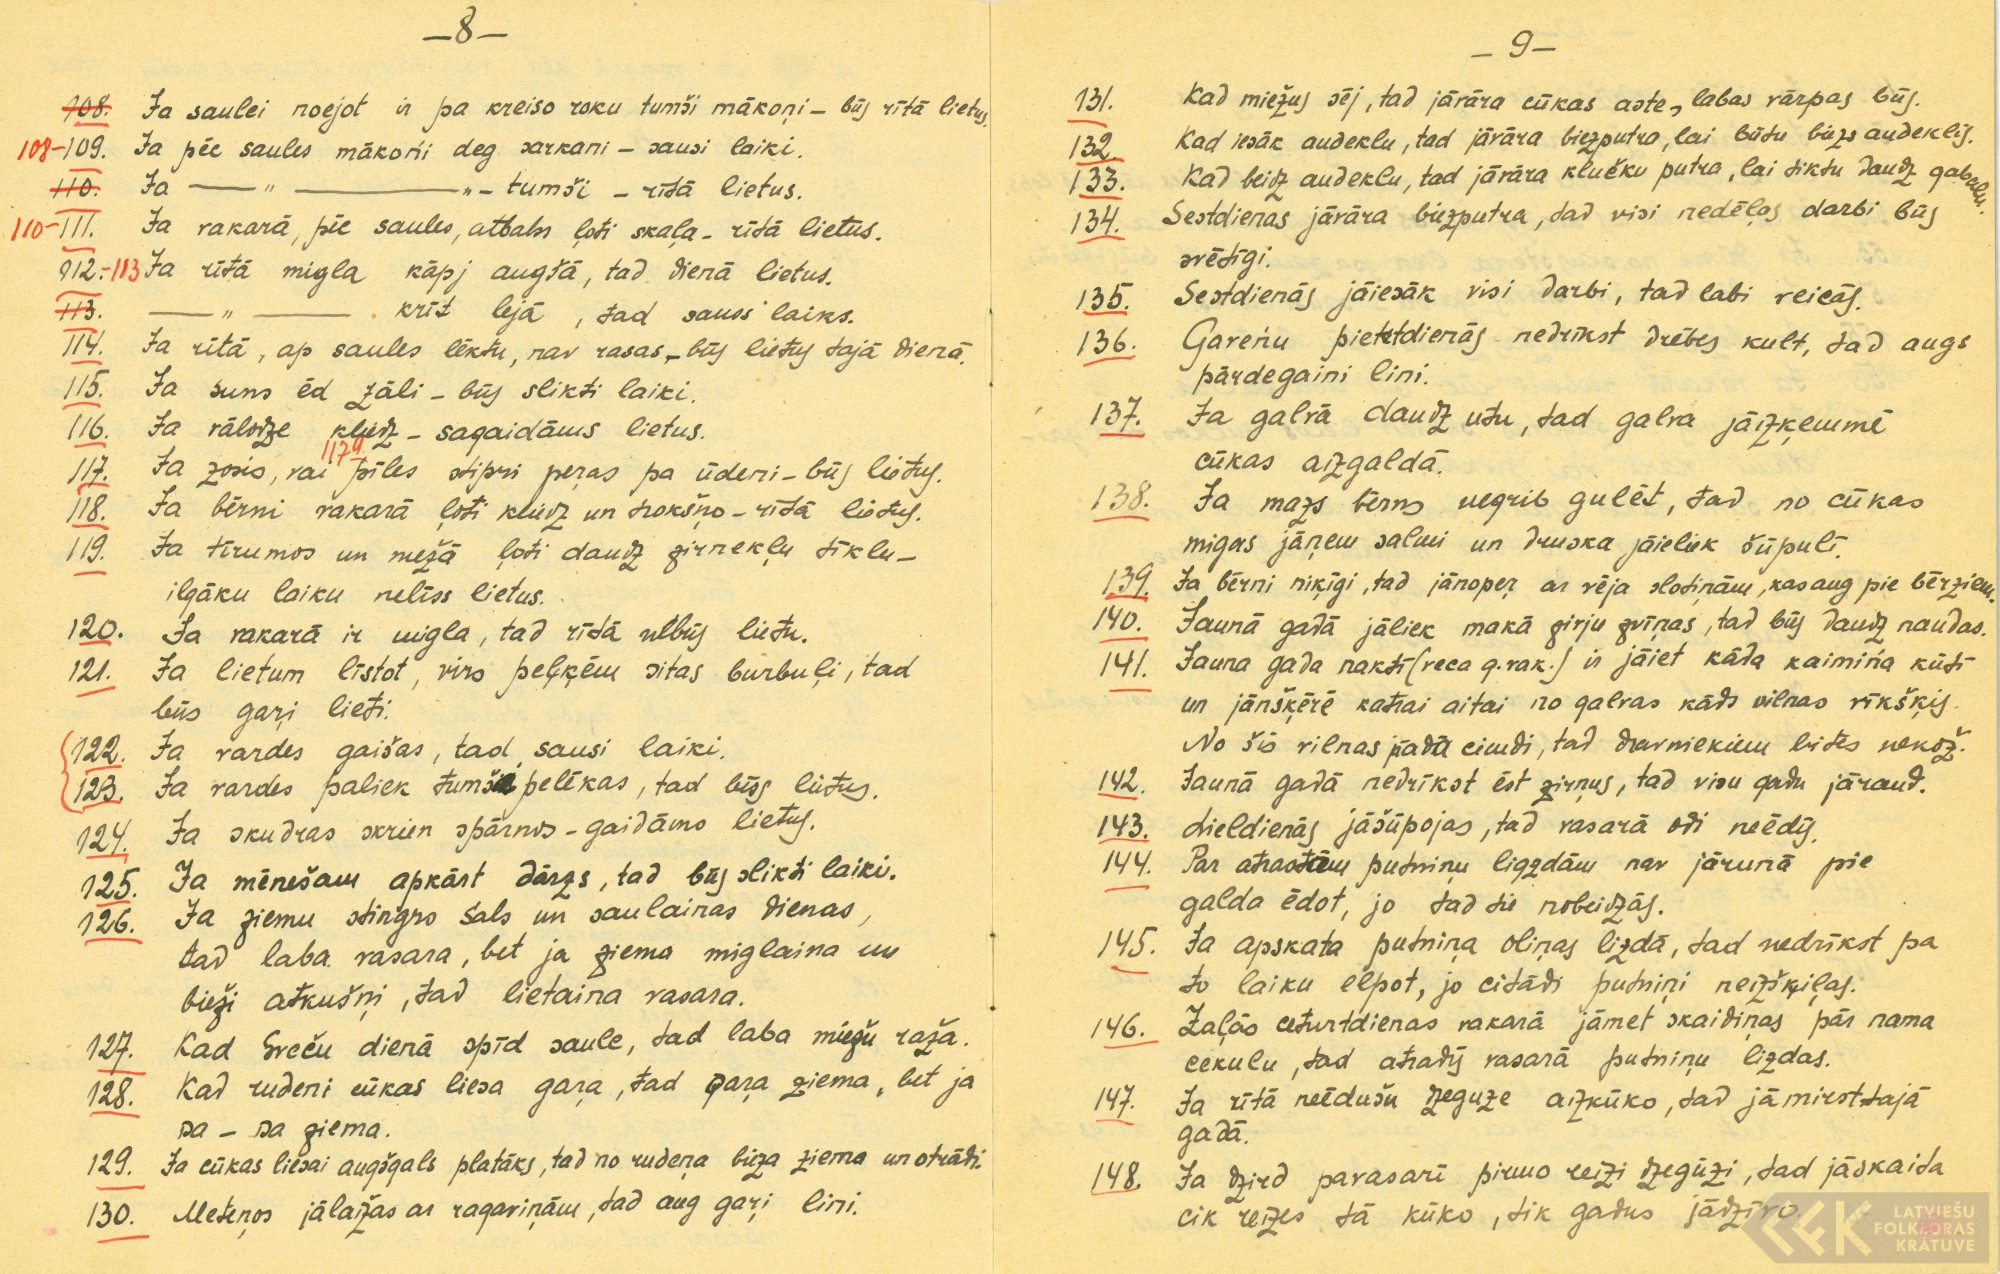 —8—
108. Ja saulei noejot ir pa kreiso roku tumši mākoņi – būs rītā lietus.
108–109. Ja pēc saules mākoņi deg sarkani – sausi laiki.
110. Ja —— " ———— " – tumši – rītā lietus.
110–111. Ja vakarā, pēc saules, atbalss ļoti skaļa – rītā lietus.
112.–113 Ja rītā migla kāpj augšā, tad dienā lietus.
113. —— " ——— krīt lejā, tad sauss laiks.
114. Ja rītā, ap saules lēktu, nav rasas – būs lietus tajā dienā.
115. Ja suns ēd zāli – būs slikti laiki.
116. Ja vālodze kliedz – sagaidāms lietus.
1179
117. Ja zosis, vai pīles stipri peras pa ūdeni – būs lietus.
118. Ja bērni vakarā ļoti kliedz un trokšņo – rītā lietus.
119. Ja tīrumos un mežā ļoti daudz zirnekļu tīklu –
ilgāku laiku nelīss lietus.
120. Ja vakarā ir migla, tad rītā nebūs lietu.
121. Ja lietum līstot, virs peļķēm sitas burbuļi, tad
būs gaŗi lieti.
122. Ja vardes gaišas, tad sausi laiki.
123. Ja vardes paliek tumši pelēkas, tad būs lietus.
124. Ja skudras skrien spārnos – gaidāms lietus.
125. Ja mēnešam apkārt dārzs, tad būs slikti laiki.
126. Ja ziemu stingrs sals un saulainas dienas,
tad laba vasara, bet ja ziema miglaina un
bieži atkušņi, tad lietaina vasara.
127. Kad Sveču dienā spīd saule, tad laba miežu raža.
128. Kad rudenī cūkas liesa gaŗa, tad gaŗa ziema, bet ja
sa – sa ziema.
129. Ja cūkas liesai augšgals platāks, tad no rudeņa bieza ziema un otrādi.
130. Meteņos jālaižas ar ragaviņām, tad aug gaŗi lini.
– 9 –
131. Kad miežus sēj, tad jāvāra cūkas aste, labas vārpas būs.
132. Kad iesāk audeklu, tad jāvāra biezputra, lai būtu biezs audeklis.
133. Kad beidz audeklu, tad jāvāra klučku putra, lai tiktu daudz gabalu.
134. Sestdienas jāvāra biezputra, tad visi nedēļas darbi būs
svētīgi.
135. Sestdienās jāiesāk visi darbi, tad labi veicās.
136. Gaveņu piektdienās nedrīkst drēbes kult, tad augs
pārdegaini lini.
137. Ja galvā daudz utu, tad galva jāizķemmē
cūkas aizgaldā.
138. Ja mazs bērns negrib gulēt, tad no cūkas
migas jāņem salmi un druska jāieliek šūpulī.
139. Ja bērni niķīgi, tad jānoper ar vēja slotiņām, kas aug pie bērziem.
140. Jaunā gadā jāliek makā zivju zvīņas, tad būs daudz naudas.
141. Jauna gada naktī (veca g. vak.) ir jāiet kāda kaimiņa kūtī
un jānšķērē katrai aitai no galvas kāds vilnas rīkšķis.
No šīs vilnas jāadā cimdi, tad dravniekiem bites nekož.
142. Jaunā gadā nedrīkst ēst zirņus, tad visu gadu jāraud.
143. Lieldienās jāšūpojas, tad vasarā odi neēdīs.
144. Par atrastām putniņu ligzdām nav jārunā pie
galda ēdot, jo tad tie nobeidzās.
145. Ja apskata putniņa oliņas lizdā, tad nedrīkst pa
to laiku elpot, jo citādi putniņi neizšķiļas.
146. Zaļās ceturtdienas vakarā jāmet skaidiņas pār nama
cekulu, tad atradīs vasarā putniņu lizdas.
147. Ja rītā neēdušu dzeguze aizkūko, tad jāmirst tajā
gadā.
148. Ja dzird pavasarī pirmo reizi dzegūzi, tad jāskaita
cik reizes tā kūko, tik gadus jādzīvo.
LATVIEŠU
FOLKLORAS
KRĀTUVE